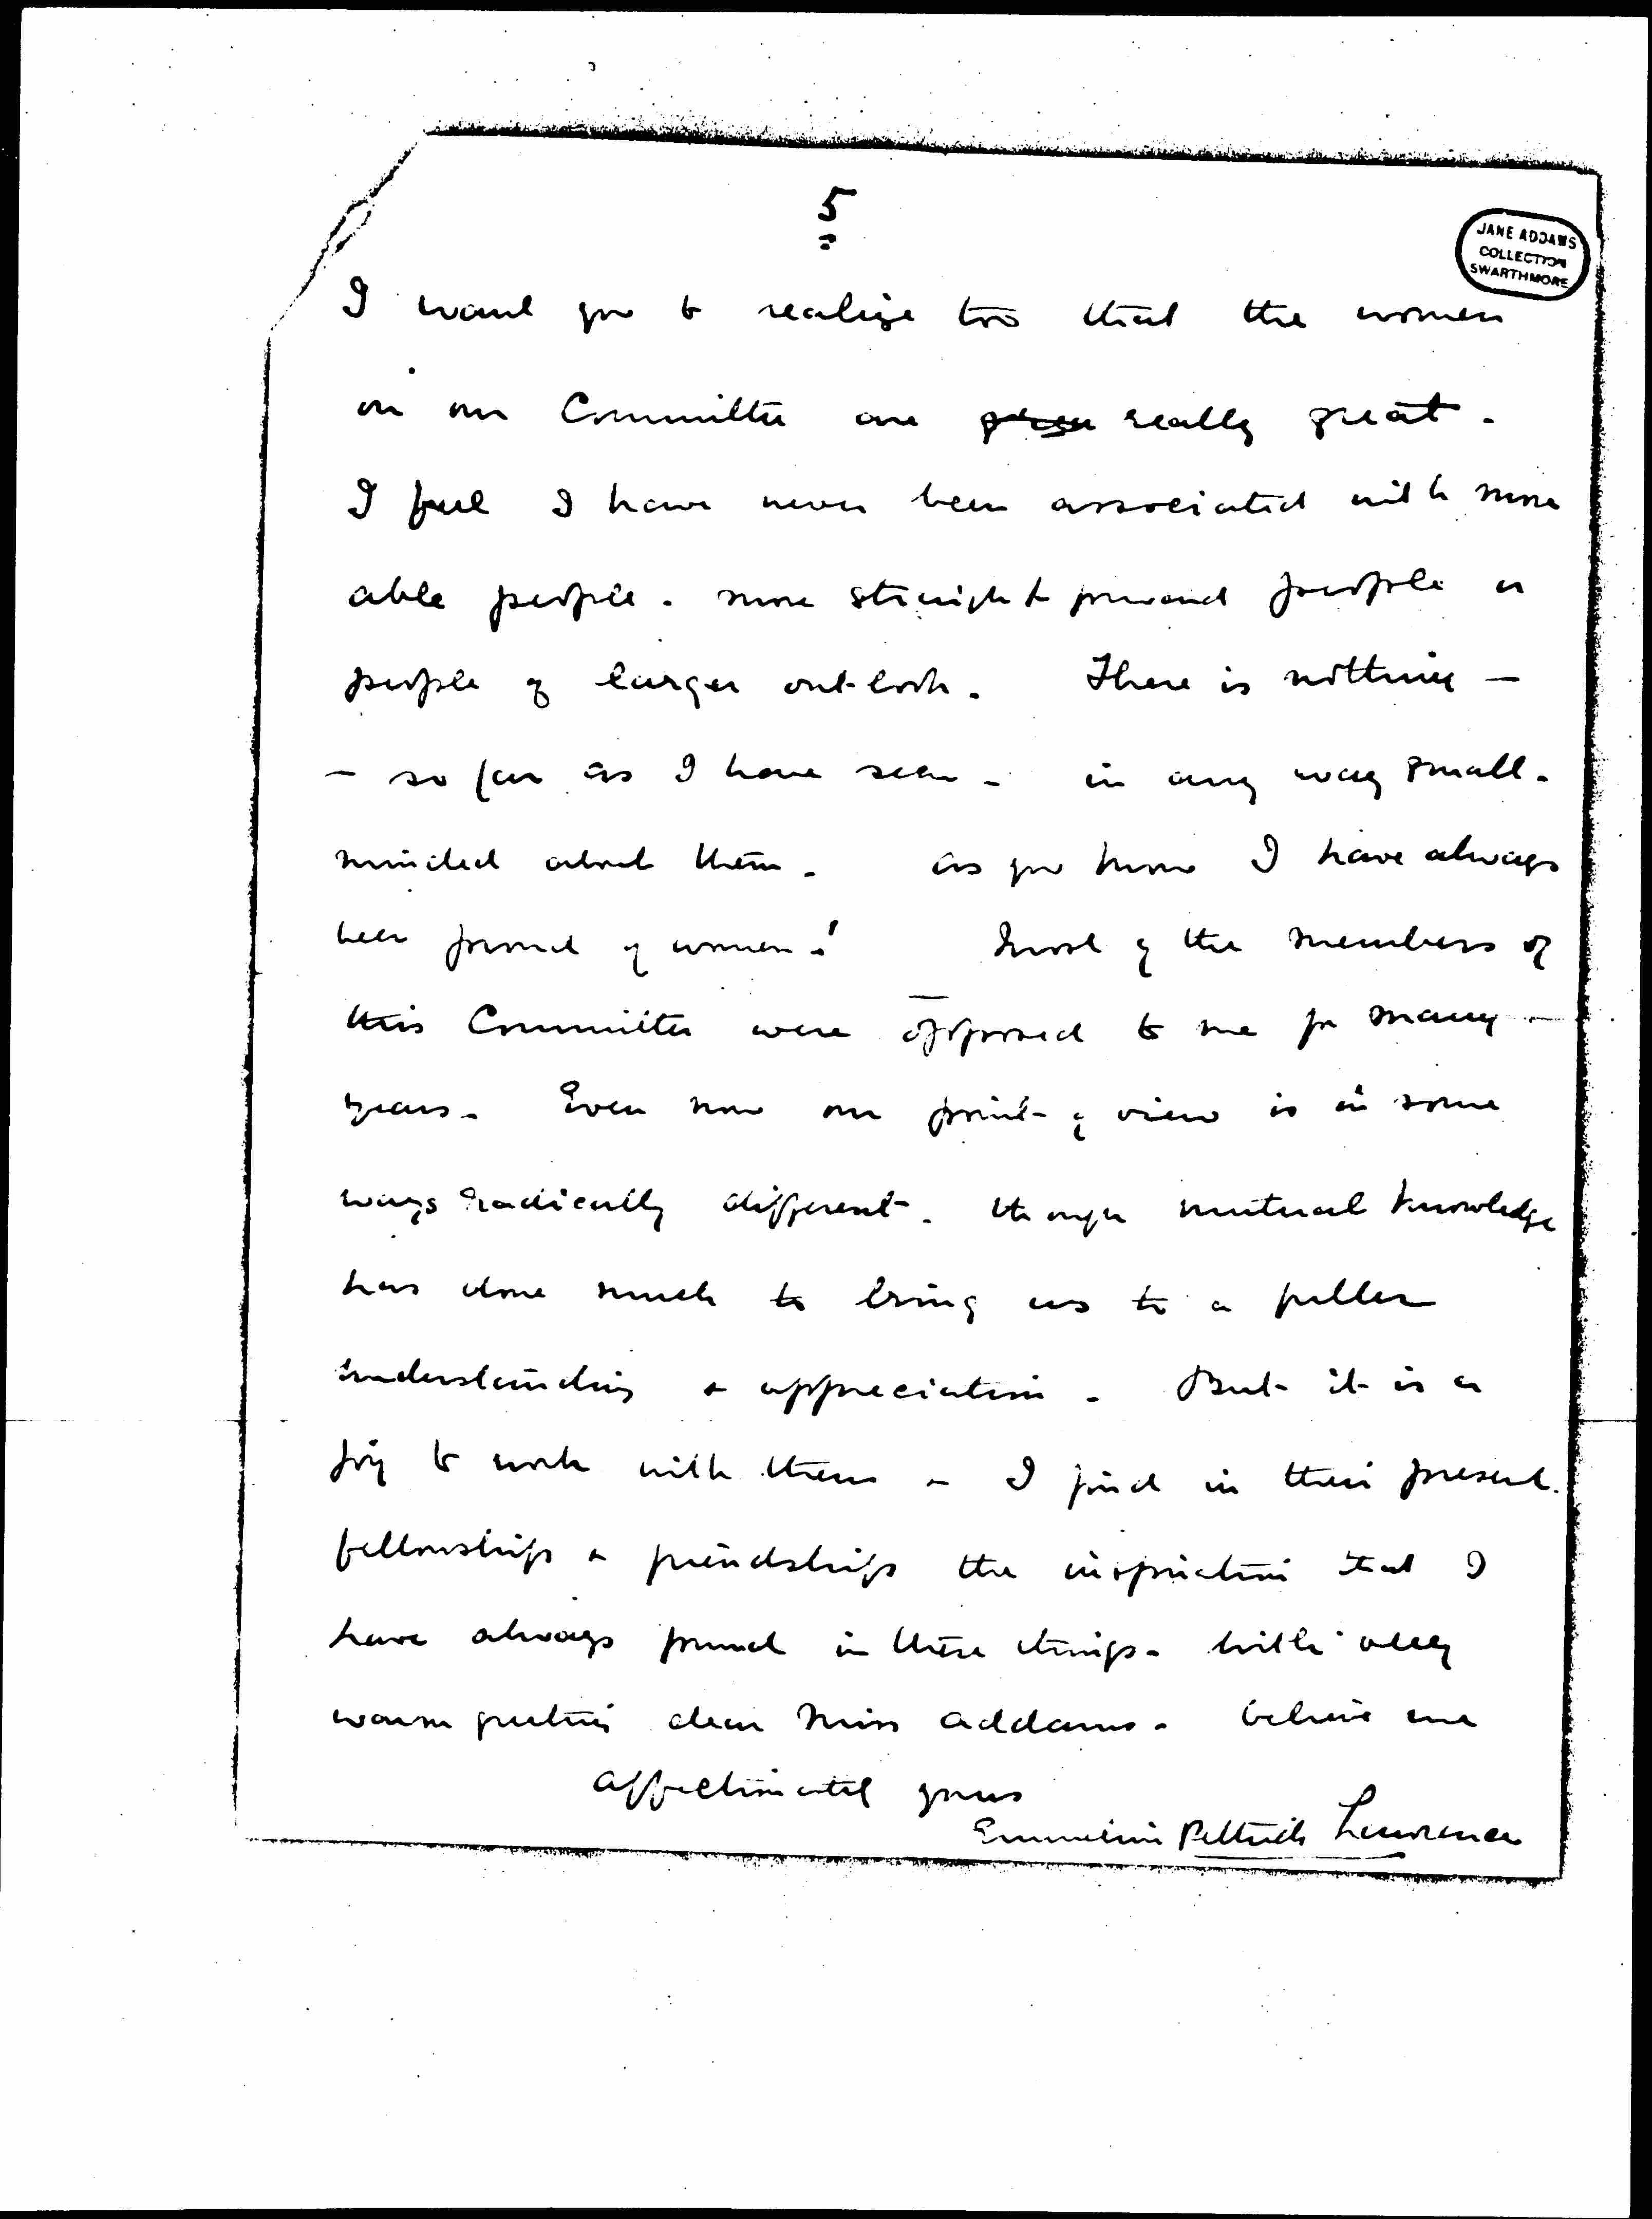 5
JANE ADDAMS
COLLECTION
SWARTHMORE
I want you to realize too that the women
on our Committee are really great.
I feel I have never been associated with more
able people - more straight forward people or
people of larger out-look. There is nothing -
- so far as I have seen - in any way small-
minded about them. As you know I have always
been proud of women! Most of the members of
this Committee were opposed to me for many -
years. Even now our point of view is in some
ways radically different - though mutual knowledge
has done much to bring us to a fuller
understanding & appreciation. But it is a
joy to work with them & I find in their present
fellowship & friendship the inspiration that I
have always found in these things. With very
warm greeting dear Miss Addams - believe me
affectionately yours
Emmeline Pethick Lawrence